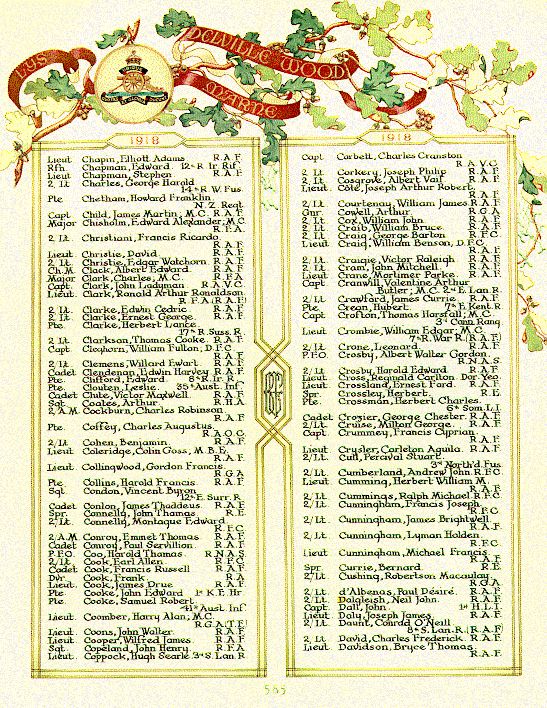 LYS
DELVILLE WOOD
MARNE
1918
Lieut Chapin, Elliott Adams R.A.F.
Rfn. Chapman, Edward 12th R. Ir. Rif.
Lieut Chapman, Stephen R.A.F.
2 Lt Charles, George Harold
14th R.W. Fus.
Pte Chetham, Howard Franklin
N.Z. Regt
Capt Child, James Martin, M.C. R.A.F.
Major Chisholm, Edward Alexander, M.C.
R.F.A.
2 Lt Christiani, Francis Ricardo
R.A.F.
Lieut Christie, David R.A.F.
2 Lt Christie, Edgar Watchorn R.A.F.
Ch.M. Clack, Albert Edward R.A.F.
Major Clark, Charles, M.C. R.F.A.
Capt. Clark, John Ladyman R.A.V.C.
Lieut. Clark, Ronald Arthur Ronaldson
R.F.A. (R.A.F.)
2 Lt Clarke, Edwin Cedric R.A.F.
2 Lt Clarke, Ernest George R.A.F.
Pte. Clarke, Herbert Lance
17th R. Suss. R.
2 Lt Clarkson, Thomas Cooke R.A.F.
Capt Cleghorn, William Fulton, D.F.C.
R.A.F.
2 Lt Clemens, Willard Ewart R.A.F.
Cadet Clendenan, Edwin Harvey R.A.F.
Pte. Clifford, Edward 8th R. Ir. R.
Pte. Clouten, Leslie 35th Aust. Inf.
Cadet Clute, Victor Maxwell R.A.F.
Sgt Coales, Arthur R.H.A.
2 A.M. Cockburn, Charles Robinson
R.A.F.
Pte. Coffey, Charles Augustus
R.A.O.C.
2/Lt Cohen, Benjamin R.A.F.
Lieut Coleridge, Colin Goss, M.B.E.
R.A.F.
Lieut Collingwood, Gordon Francis
R.G.A.
Pte Collins, Harold Francis R.A.F.
Sgt. Condon, Vincent Byron
12th E. Surr. R.
Cadet Conlon, James Thaddeus R.A.F.
Spr. Connelly, John Thomas R.E.
2/Lt Connelly, Montague Edward
R.F.C.
2 A.M Conroy, Emmet Thomas R.A.F.
Cadet Conroy, Paul Servillion R.A.F.
P.F.O. Coo, Harold Thomas R.N.A.S.
2/Lt Cook, Earl Allen R.F.C.
Cadet Cook, Francis Russell R.A.F.
Dvr. Cook, Frank R.A.
Lieut Cook, James Drue R.A.F.
Pte Cooke, John Edward 1st K.E. Hr
Pte Cooke, Samuel Robert
41st Aust. Inf.
Lieut Coomber, Harry Alan, M.C.
R.G.A. (T.F.)
Lieut Coons, John Walter R.A.F.
Lieut Cooper, Wilfred James R.A.F.
Sgt. Copeland, John Henry R.F.A.
Lieut Coppock, Hugh Searle 3rd S. Lan. R.
1918
Capt Corbett, Charles Cranston
R.A.V.C.
2 Lt Corkery, Joseph Philip R.A.F.
2 Lt Cosgrove, Albert Voif R.A.F.
Lieut. Côté, Joseph Arthur Robert
R.A.F.
2/Lt Courtenay, William James R.A.F.
Gnr Cowell, Arthur R.G.A.
2 Lt Cox, William John R.A.F.
2 Lt Craib, William Bruce R.A.F.
2 Lt Craig, George Barton R.F.C.
Lieut Craig, William Benson, D.F.C.
R.A.F.
2/Lt Craigie, Victor Raleigh R.A.F.
2 Lt Cram, John Mitchell R.A.F.
Lieut Crane, Mortimer Parke R.A.F.
Capt Cranwill, Valentine Arthur
Butler, M.C. 2nd E. Lan. R.
2 Lt Crawford, James Currie R.A.F.
Pte Crean, Hubert 7th E. Kent R.
Capt Crofton, Thomas Horsfall, M.C.
3rd Conn. Rang.
Lieut Crombie, William Edgar, M.C.
7th R. War. R. (R.A.F.)
2/Lt Crone, Leonard R.A.F.
P.F.O. Crosby, Albert Walter Gordon
R.N.A.S.
2/Lt Crosby, Harold Edward R.A.F.
Lieut Cross, Reginald Carlton Dor. Yeo.
Lieut Crossland, Ernest Ford R.A.F.
Spr. Crossley, Herbert R.E.
Pte. Crossman, Herbert Charles
6th Som. L.I.
Cadet Crozier, George Chester R.A.F.
2/Lt Cruise, Milton George R.A.F.
Capt. Crummey, Francis Cyprian
R.A.F.
Lieut Crysler, Carleton Aquila R.A.F.
2/Lt Cull, Percival Stuart
3rd North'd. Fus.
2/Lt Cumberland, Andrew John R.F.C.
Lieut Cumming, Herbert William M.
R.A.F.
2/Lt Cummings, Ralph Michael R.F.C.
2/Lt Cunningham, Francis Joseph
R.F.C.
2/Lt Cunningham, James Brightwell
R.A.F.
2/Lt Cunningham, Lyman Holden
R.F.C.
Lieut Cunningham, Michael Francis
R.A.F.
Spr Currie, Bernard R.E.
2/Lt Cushing, Robertson Macaulay
R.G.A.
2/Lt d'Albenas, Paul Désiré R.A.F.
2/Lt Dalgleish, Neil John R.A.F.
Capt Dall, John 1st H.L.I.
Lieut Daly, Joseph James R.A.F.
2/Lt Daunt, Conrad O'Neill
8th S. Lan. R. (R.A.F.)
2 Lt David, Charles Frederick R.A.F.
Lieut Davidson, Bryce Thomas
R.A.F.
565